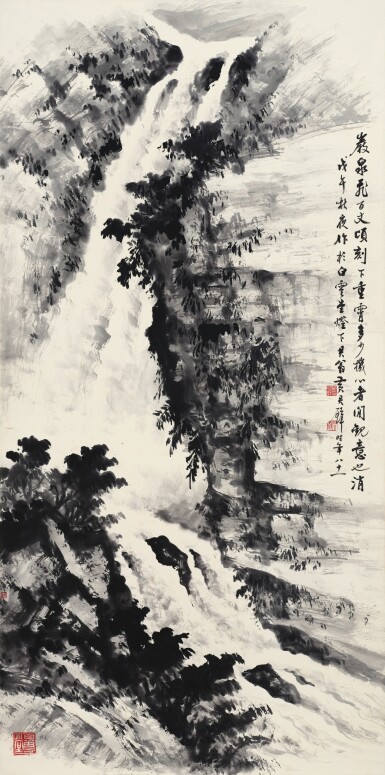 巖泉飛百丈頃刻下重霄多少機心者閒觀意也消
戊午秋夜作於白雲堂燈下君翁黃君璧時年八十一